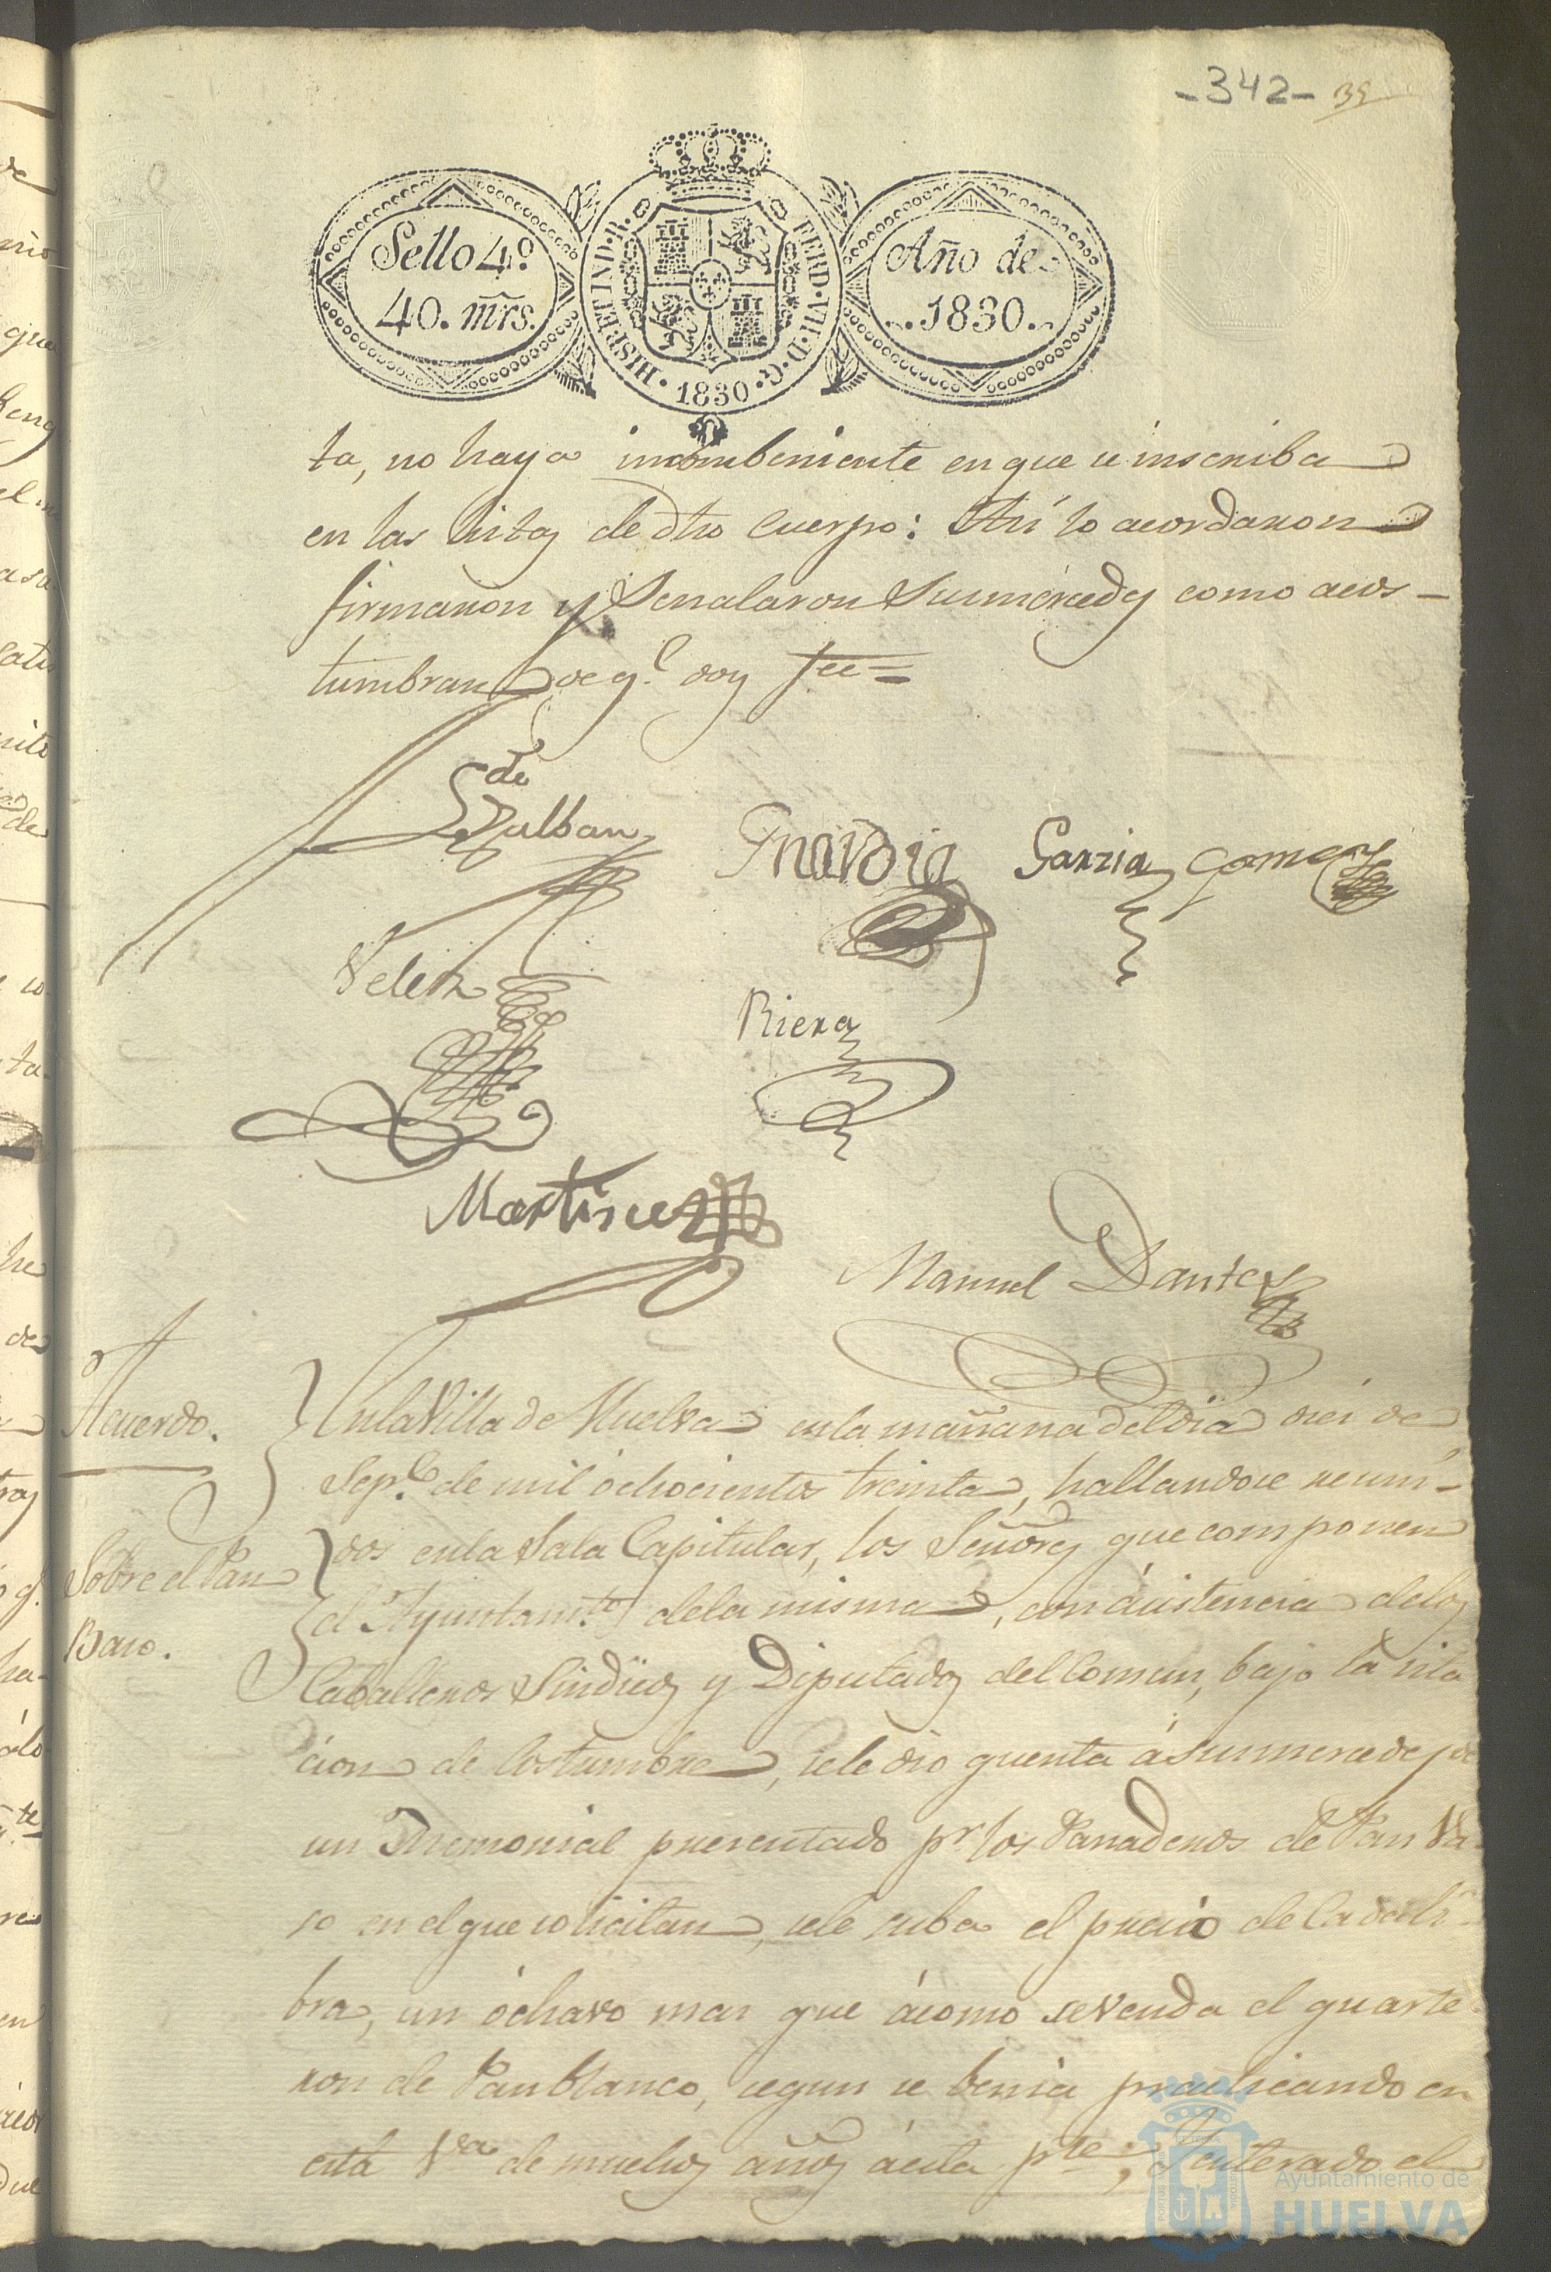 -342- 39
Sello 4.º
40. mrs.
HISP. ET IND. R. FERD. VII. D. G. 1830
Año de
1830.
ta, no haya incombeniente en que se inscriba
en las listas de dho Cuerpo: Así lo acordaron
firmaron y Señalaron Sus mercedes como acos-
tumbran de q.e doy fee=
Guardia Garzia Gomez
Velez
Riera
Martinez
Manuel Dantes
Acuerdo.
Sobre el Pan
Baso.
En la Villa de Huelva en la mañana del dia dies de
Sep.e de mil ochocientos treinta, hallandose reuni-
dos en la Sala Capitular, los Señores que componen
el Ayuntam.to de la misma, con asistencia de los
Caballeros Sindicos y Diputados del Comun, bajo la sita
cion de Costumbre, se le dio quenta á sus mercedes de
un Memorial presentado pr los Panaderos de Pan Ba
so en el que solicitan, se le suba el precio de Cada li
bra, un óchavo mas que ácomo se venda el quarte
ron de Pan Blanco, segun se benia practicando en
esta V.a de muchos años áesta pte; Y enterado el
Ayuntamiento de
HUELVA